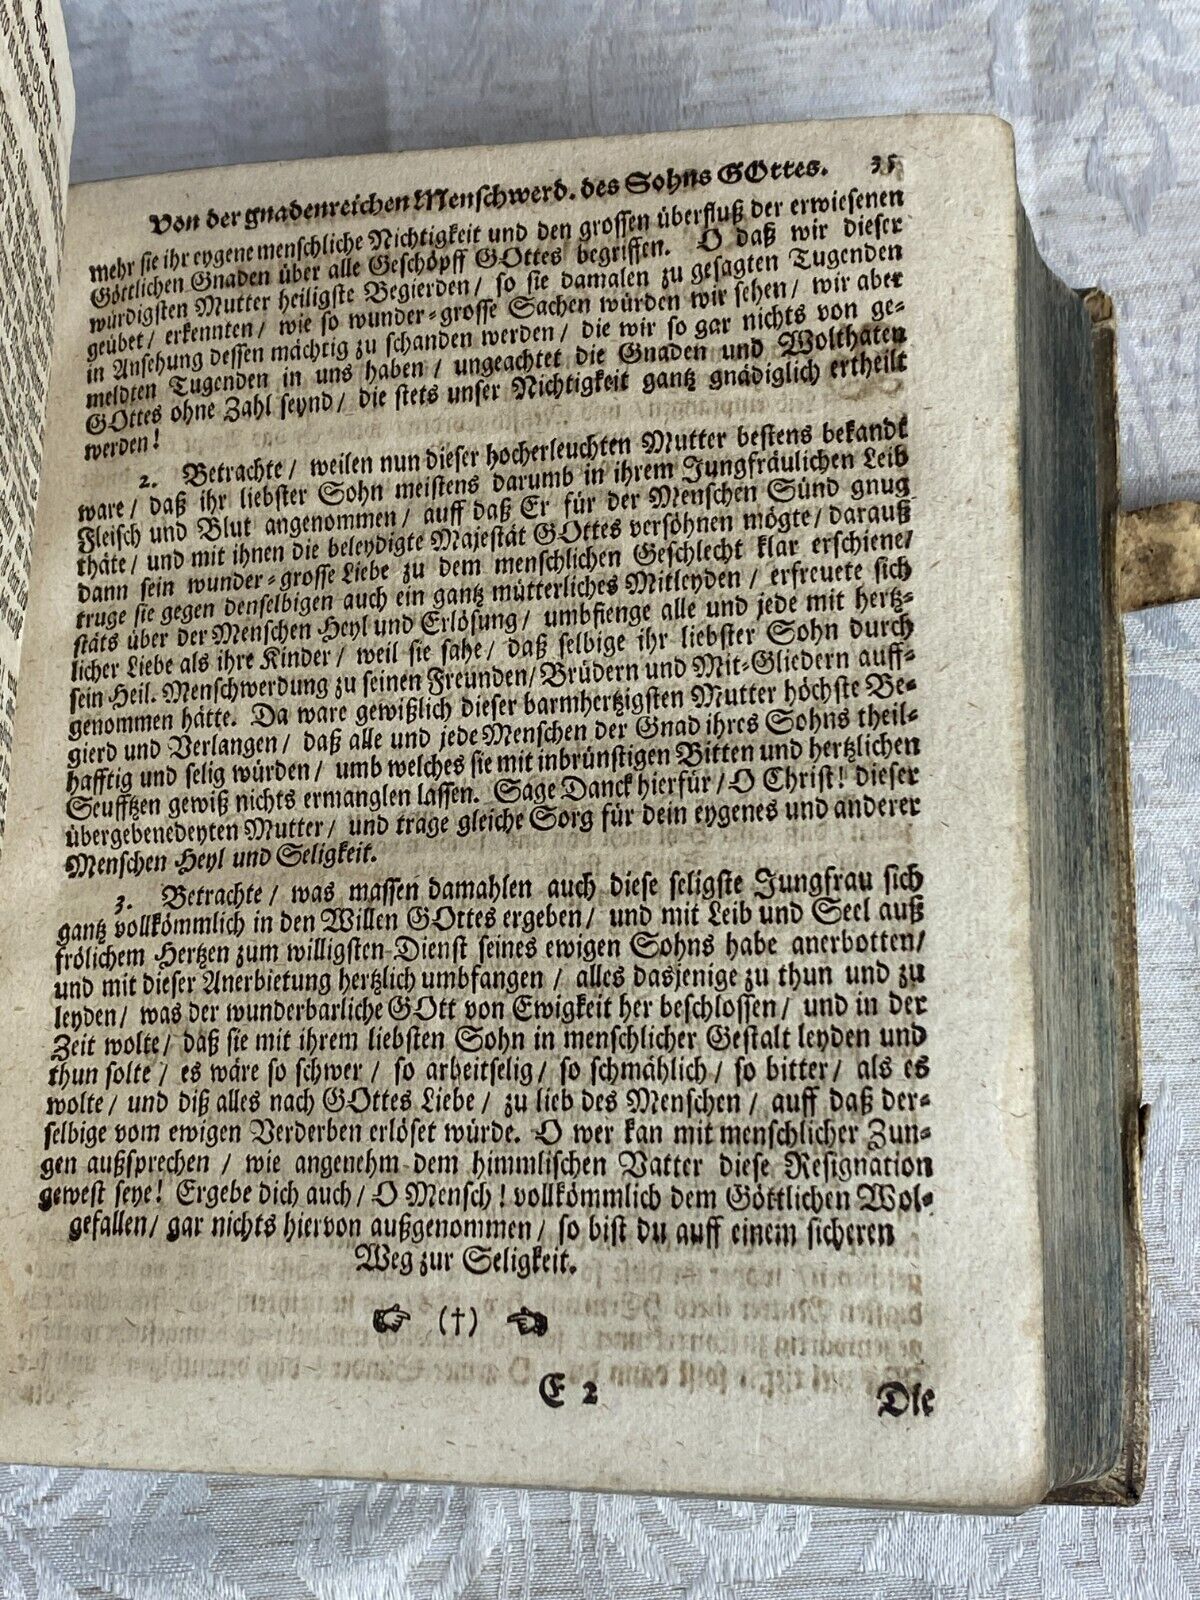 Von der gnadenreichen Menschwerd. des Sohns GOttes. 35
mehr sie ihr eygene menschliche Nichtigkeit und den grossen überfluß der erwiesenen
Göttlichen Gnaden über alle Geschöpff GOttes begriffen. O daß wir dieser
würdigsten Mutter heiligste Begierden / so sie damalen zu gesagten Tugenden
geübet / erkennten / wie so wunder-grosse Sachen würden wir sehen / wir aber
in Ansehung dessen mächtig zu schanden werden / die wir so gar nichts von ge-
meldten Tugenden in uns haben / ungeachtet die Gnaden und Wolthaten
GOttes ohne Zahl seynd / die stets unser Nichtigkeit gantz gnädiglich ertheilt
werden!
2. Betrachte / weilen nun dieser hocherleuchten Mutter bestens bekandt
ware / daß ihr liebster Sohn meistens darumb in ihrem Jungfräulichen Leib
Fleisch und Blut angenommen / auff daß Er für der Menschen Sünd gnug
thäte / und mit ihnen die beleydigte Majestät GOttes versöhnen mögte / darauß
dann sein wunder-grosse Liebe zu dem menschlichen Geschlecht klar erschiene /
truge sie gegen denselbigen auch ein gantz mütterliches Mitleyden / erfreuete sich
stäts über der Menschen Heyl und Erlösung / umbfienge alle und jede mit hertz-
licher Liebe als ihre Kinder / weil sie sahe / daß selbige ihr liebster Sohn durch
sein Heil. Menschwerdung zu seinen Freunden / Brüdern und Mit-Gliedern auff-
genommen hätte. Da ware gewißlich dieser barmhertzigsten Mutter höchste Be-
gierd und Verlangen / daß alle und jede Menschen der Gnad ihres Sohns theil-
hafftig und selig würden / umb welches sie mit inbrünstigen Bitten und hertzlichen
Seufftzen gewiß nichts ermanglen lassen. Sage Danck hierfür / O Christ! dieser
übergebenedeyten Mutter / und trage gleiche Sorg für dein eygenes und anderer
Menschen Heyl und Seligkeit.
3. Betrachte / was massen damahlen auch diese seligste Jungfrau sich
gantz vollkömmlich in den Willen GOttes ergeben / und mit Leib und Seel auß
frölichem Hertzen zum willigsten Dienst seines ewigen Sohns habe anerbotten /
und mit dieser Anerbietung hertzlich umbfangen / alles dasjenige zu thun und zu
leyden / was der wunderbarliche GOtt von Ewigkeit her beschlossen / und in der
Zeit wolte / daß sie mit ihrem liebsten Sohn in menschlicher Gestalt leyden und
thun solte / es wäre so schwer / so arbeitselig / so schmählich / so bitter / als es
wolte / und diß alles nach GOttes Liebe / zu lieb des Menschen / auff daß der-
selbige vom ewigen Verderben erlöset würde. O wer kan mit menschlicher Zun-
gen außsprechen / wie angenehm dem himmlischen Vatter diese Resignation
gewest seye! Ergebe dich auch / O Mensch! vollkömmlich dem Göttlichen Wol-
gefallen / gar nichts hiervon außgenommen / so bist du auff einem sicheren
Weg zur Seligkeit.
☞ (†) ☜
E 2 Die